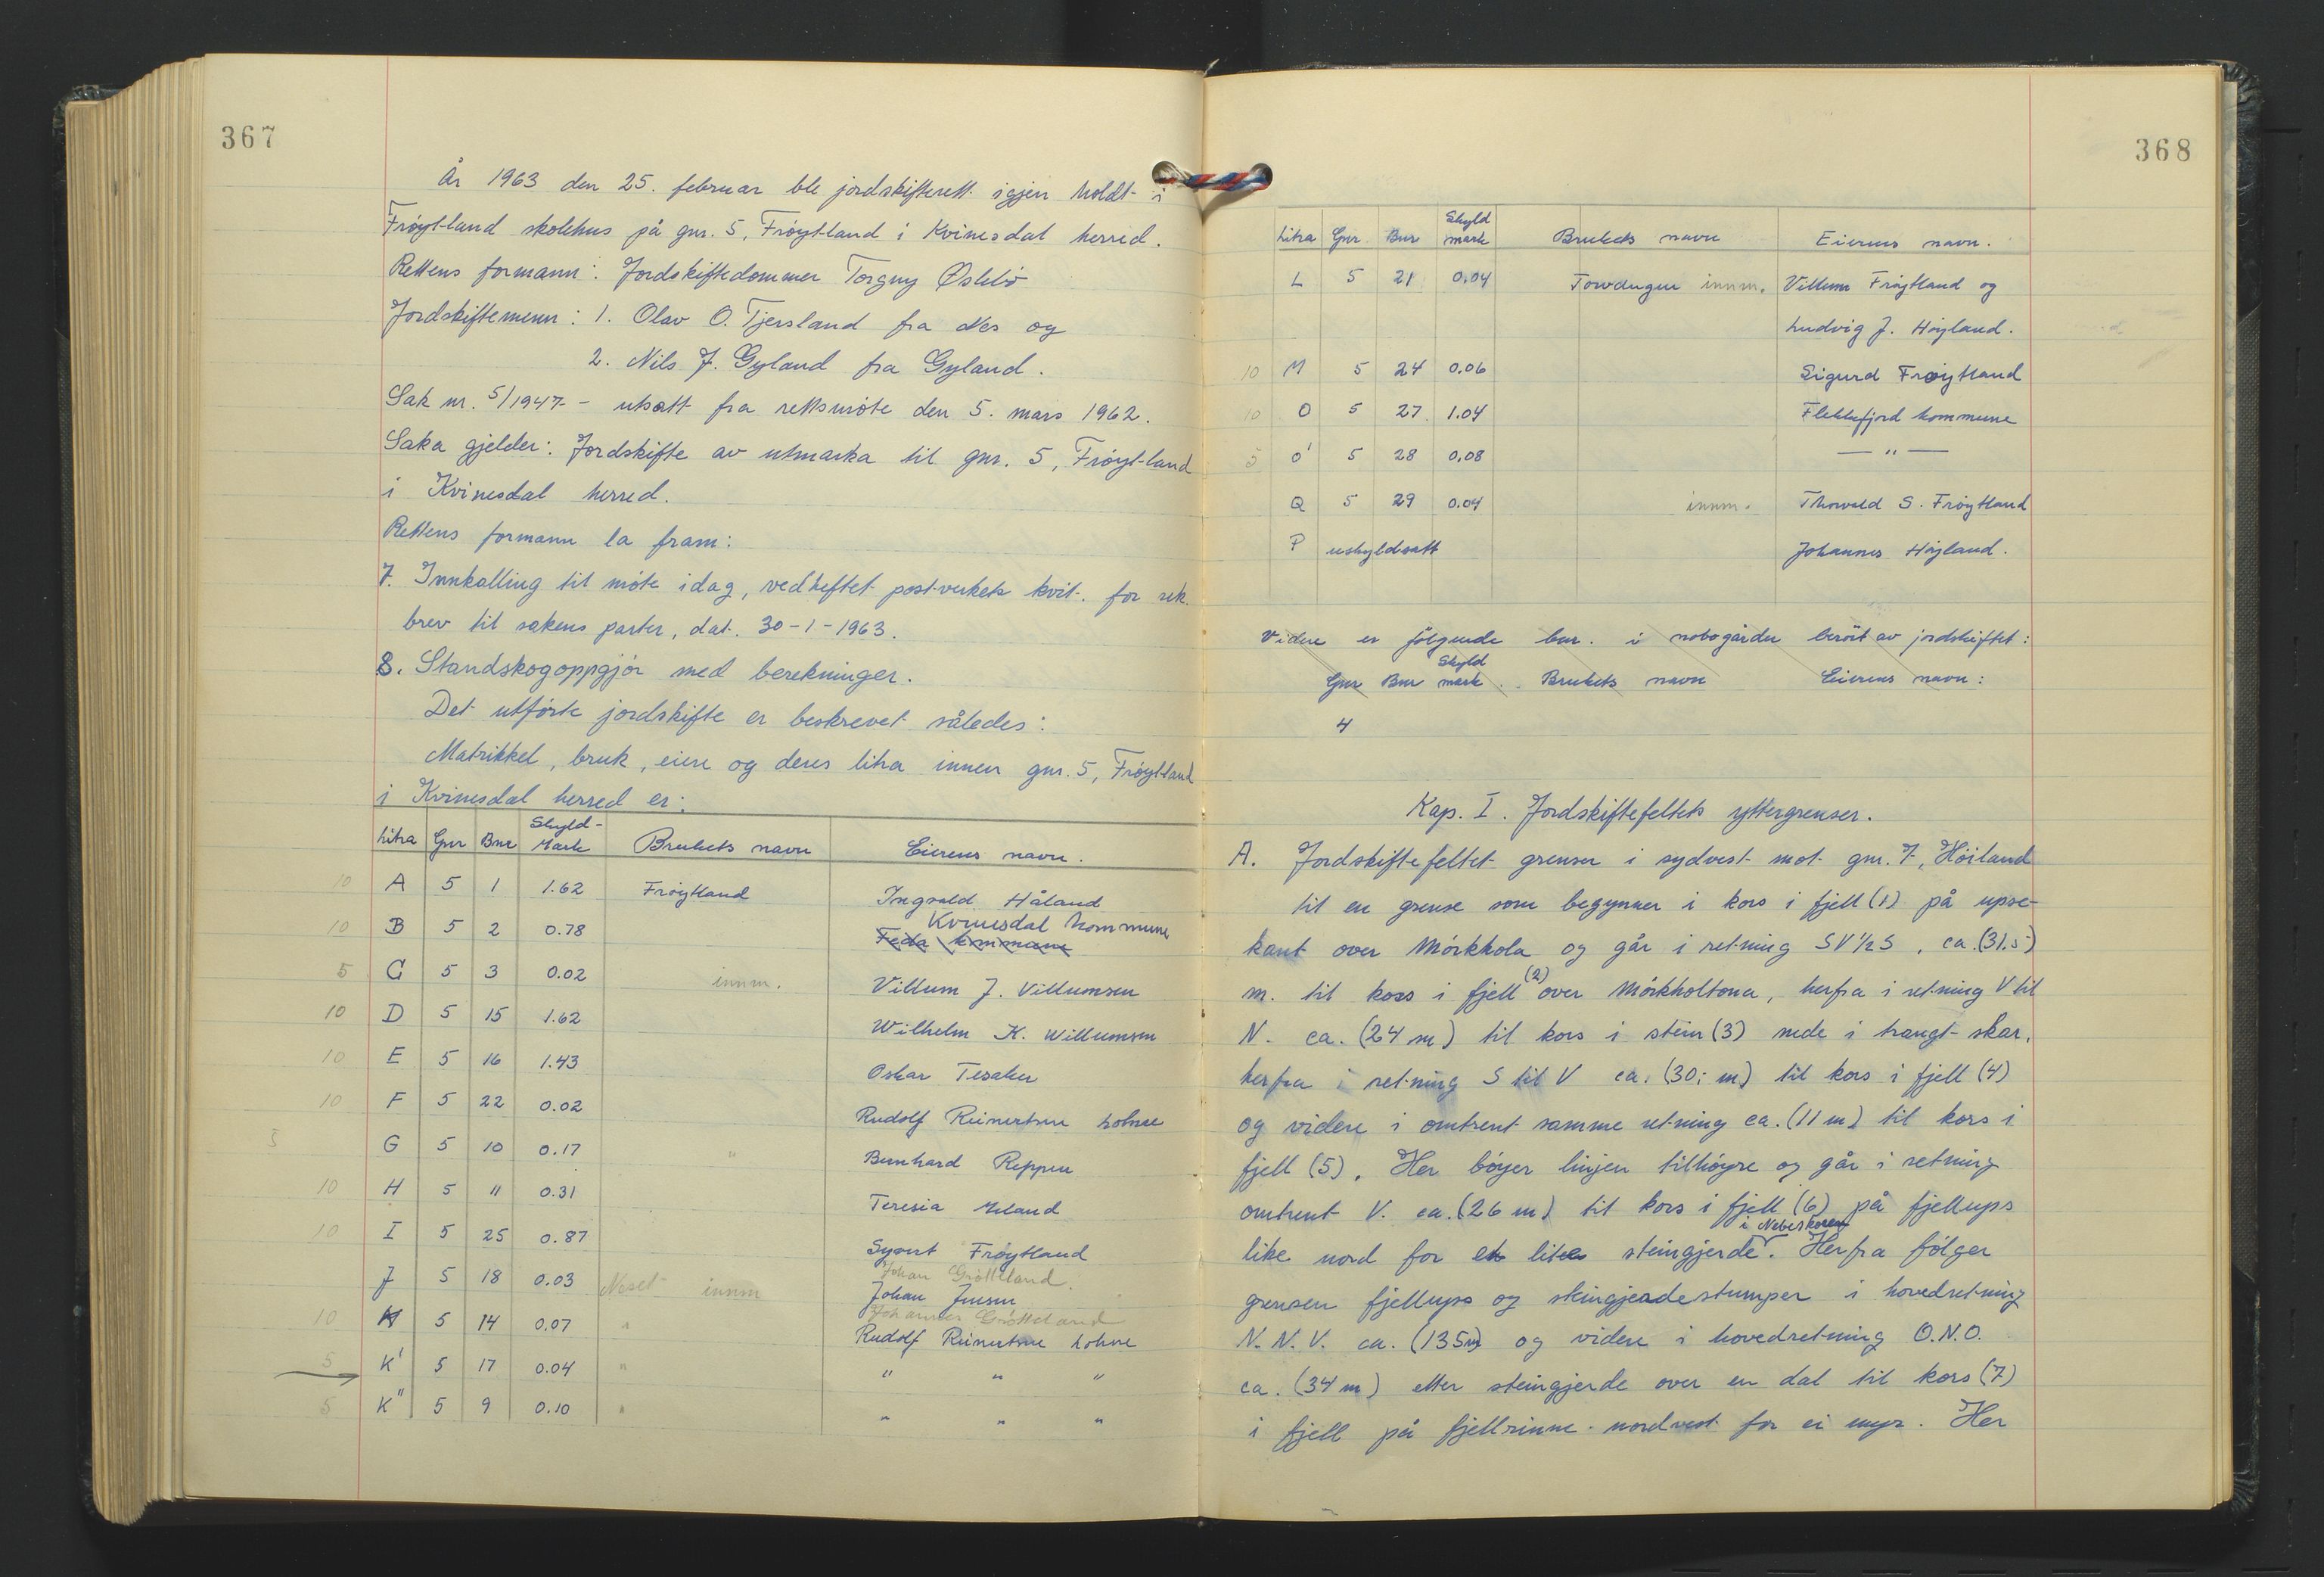 367
År 1963 den 25. februar ble jordskifterett igjen holdt i
Frøytland skolehus på gnr. 5, Frøytland i Kvinesdal herred.
Rettens formann: Jordskiftedommer Torgny Østebö
Jordskiftemenn: 1. Olav O. Tjersland fra Nes og
2. Nils J. Gyland fra Gyland.
Sak nr. 5/1947 - utsatt fra rettsmöte den 5. mars 1962.
Saka gjelder: Jordskifte av utmarka til gnr. 5, Fröytland
i Kvinesdal herred.
Rettens formann la fram:
7. Innkalling til möte idag, vedheftet postverkets kvit. for rek.
brev til sakens parter, dat. 30-1-1963.
8. Standskogoppgjör med berekninger.
Det utförte jordskifte er beskrevet således:
Matrikkel, bruk, eiere og deres litra innen gnr. 5, Fröytland
i Kvinesdal herred er:
Litra Gnr Bnr Skyld-Mark Brukets navn Eierens navn.
10 A 5 1 1.62 Fröytland Ingvald Håland
10 B 5 2 0.78 Feda kommune Kvinesdal kommune
5 C 5 3 0.02 innm. Villum J. Villumsen
10 D 5 15 1.62 Wilhelm K. Willumsen
10 E 5 16 1.43 Oskar Tesaker
10 F 5 22 0.02 Rudolf Reinertsen Lohne
5 G 5 10 0.17 " Bernhard Reppen
10 H 5 11 0.31 Teresia
10 I 5 25 0.87 Syvert Fröytland
J 5 18 0.03 Neset innm Johan Grötteland. Johan Jensen
10 K 5 14 0.07 " Johannes Grötteland Rudolf Reinertsen Lohne
5 K' 5 17 0.04 " " " "
5 K" 5 9 0.10 " " " "
368
Litra Gnr. Bnr Skyld mark Brukets navn Eierens navn.
L 5 21 0.04 innm. Villum Fröytland og
Ludvig J. Höyland.
10 M 5 24 0.06 Sigurd Frøytland
10 O 5 27 1.04 Flekkefjord kommune
5 O' 5 28 0.08 — " —
Q 5 29 0.04 innm. Thorvald S. Fröytland
P uskyldsatt Johannes Höyland.
Videre er fölgende bnr. i nabogårder berört av jordskiftet:
Gnr Bnr Skyld mark. Brukets navn Eierens navn:
4
Kap. I. Jordskiftefeltets yttergrenser.
A. Jordskiftefeltet grenser i sydvest mot gnr. 7, Höiland
til en grense som begynner i kors i fjell (1) på upse-
kant over Mörkhola og går i retning SV½S, ca. (31.5)
m. til kors i fjell (2) over Mörkholtona, herfra i retning V til
N. ca. (24 m) til kors i stein (3) nede i trangt skar,
herfra i retning S til V ca. (30; m) til kors i fjell (4)
og videre i omtrent samme retning ca. (11 m) til kors i
fjell (5). Her böyer linjen tilhöyre og går i retning
omtrent V. ca. (26 m) til kors i fjell (6) på fjellups
like nord for et lites steingjerde i Nebeskoren. Herfra fölger
grensen fjellups og steingjerdestumper i hovedretning
N.N.V. ca. (135m) og videre i hovedretning O.N.O.
ca. (34 m) etter steingjerde over en dal til kors (7)
i fjell på fjellrinne nordvest for ei myr. Her